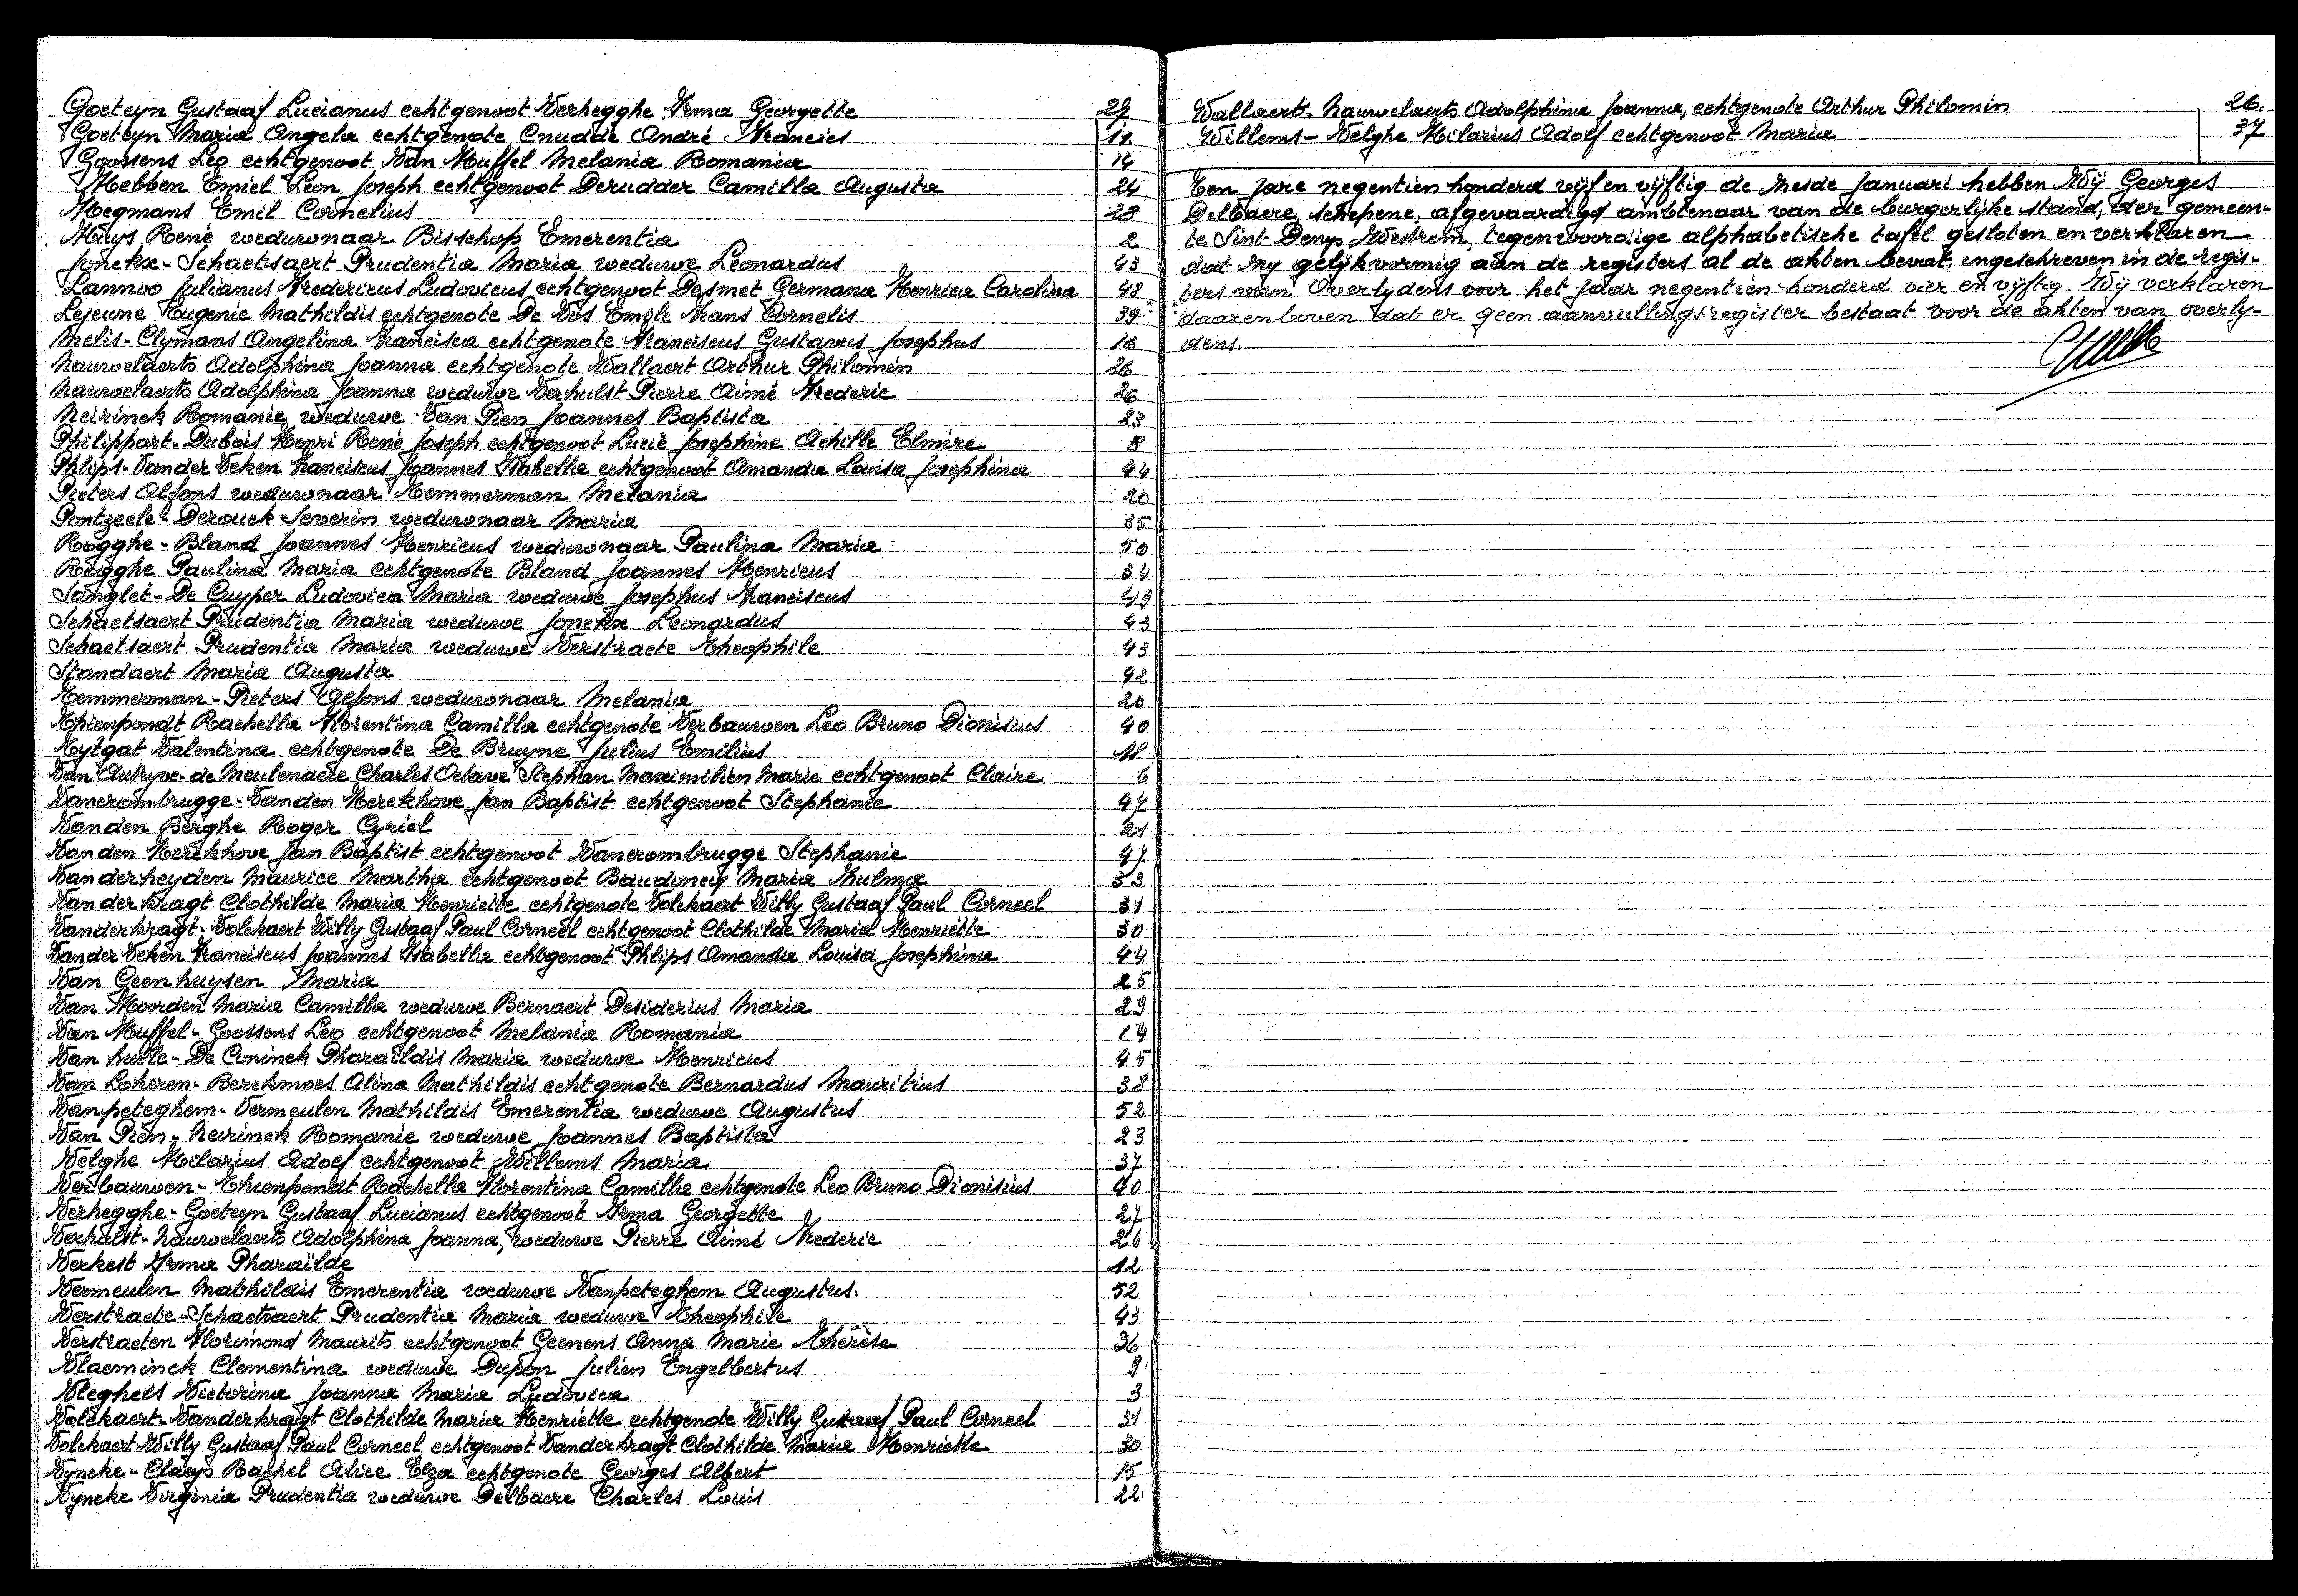 Goeteyn Gustaaf Lucianus echtgenoot Verhegghe Irma Georgette 27
Goeteyn Maria Angela echtgenote Cnudde André Francies 11.
Goossens Leo echtgenoot Van Huffel Melania Romania 14
Hebben Emiel Leon Joseph echtgenoot Derudder Camilla Augusta 24
Hegmans Emil Cornelius 28
Huys René weduwnaar Bisschop Emerentia 2
Jonckx-Schaetsaert Prudentia Maria weduwe Leonardus 43
Lannoo Julianus Fredericus Ludovicus echtgenoot Desmet Germana Henrica Carolina 48
Lejeune Eugenie Mathildis echtgenote De Vos Emile Frans Cornelis 39
Melis-Clymans Angelina Francisca echtgenote Franciscus Gustavus Josephus 16
Nauwelaerts Adolphina Joanna echtgenote Wallaert Arthur Philomin 26
Nauwelaerts Adolphina Joanna weduwe Verhulst Pierre Aimé Frederic 26
Neirinck Romanie weduwe Van Pien Joannes Baptista 23
Philippart-Dubois Henri René Joseph echtgenoot Lucie Josephine Achille Elmire 8
Phlips-Vander Veken Franciscus Joannes Isabella echtgenoot Amanda Louisa Josephina 44
Pieters Alfons weduwnaar Temmerman Melania 20
Pontzeele-Derouck Severin weduwnaar Maria 35
Rogghe-Bland Joannes Henricus weduwnaar Paulina Maria 50
Rogghe Paulina Maria echtgenote Bland Joannes Henricus 34
Sanglet-De Cuyper Ludovica Maria weduwe Josephus Franciscus 49
Schaetsaert Prudentia Maria weduwe Jonckx Leonardus 43
Schaetsaert Prudentia Maria weduwe Verstraete Theophile 43
Standaert Maria Augusta 42
Temmerman-Pieters Alfons weduwnaar Melania 20
Thienpondt Rachella Florentina Camilla echtgenote Verbauwen Leo Bruno Dionisius 40
Tytgat Valentina echtgenote De Bruyne Julius Emilius 18
Van Autryve-de Meulenaere Charles Octave Stephan Maximilien Marie echtgenoot Claire 6
Vancrombrugge-Vanden Kerckhove Jan Baptist echtgenoot Stephanie 47
Van den Berghe Roger Cyriel 21
Van den Kerckhove Jan Baptist echtgenoot Vancrombrugge Stephanie 47
Vanderheyden Maurice Martha echtgenoot Baudoncq Maria Zulma 33
Vanderkragt Clothilde Maria Henriette echtgenote Volckaert Willy Gustaaf Paul Corneel 31
Vanderkragt-Volckaert Willy Gustaaf Paul Corneel echtgenoot Clothilde Maria Henriette 30
Vander Veken Franciscus Joannes Isabella echtgenoot Phlips Amanda Louisa Josephina 44
Van Geenhuysen Maria 25
Van Hoorden Maria Camilla weduwe Bernaert Desiderius Maria 29
Van Huffel-Goossens Leo echtgenoot Melania Romania 14
Van hulle-De Coninck Pharaïldis Maria weduwe Henricus 45
Van Lokeren-Berckmoes Alina Mathildis echtgenote Bernardus Mauritius 38
Vanpeteghem-Vermeulen Mathildis Emerentia weduwe Augustus 52
Van Pien-Neirinck Romanie weduwe Joannes Baptista 23
Velghe Hilarius Adolf echtgenoot Willems Maria 37
Verbauwen-Thienpondt Rachella Florentina Camilla echtgenote Leo Bruno Dionisius 40
Verhegghe-Goeteyn Gustaaf Lucianus echtgenoot Irma Georgette 27
Verhulst-Nauwelaerts Adolphina Joanna, weduwe Pierre Aimé Frederic 26
Verkest Irma Pharaïlde 12
Vermeulen Mathildis Emerentia weduwe Vanpeteghem Augustus. 52
Verstraete-Schaetsaert Prudentia Maria weduwe Theophile 43
Verstraeten Florimond Maurits echtgenoot Geenens Anna Marie Thérèse 36
Vlaeminck Clementina weduwe Dupon Julien Engelbertus 9
Vleghels Victorina Joanna Maria Ludovica 3
Volckaert-Vanderkragt Clothilde Maria Henriette echtgenote Willy Gustaaf Paul Corneel 31
Volckaert Willy Gustaaf Paul Corneel echtgenoot Vanderkragt Clothilde Maria Henriette 30
Vyncke-Claeys Rachel Alice Elza echtgenote Georges Albert 15
Vyncke Virginia Prudentia weduwe Delbaere Charles Louis 22.
Wallaert-Nauwelaerts Adolphina Joanna, echtgenote Arthur Philomin 26.
Willems-Velghe Hilarius Adolf echtgenoot Maria 37
Ten jare negentien honderd vijf en vijftig de zesde Januari hebben Wij Georges
Delbaere, schepene, afgevaardigd ambtenaar van de burgerlijke stand, der gemeen-
te Sint-Denys-Westrem, tegenwoordige alphabetische tafel gesloten en verklaren
dat zij gelijkvormig aan de registers al de akten bevat, ingeschreven in de regis-
ters van Overlijdens voor het jaar negentien honderd vier en vijftig. Wij verklaren
daarenboven dat er geen aanvullingsregister bestaat voor de akten van overlij-
dens.